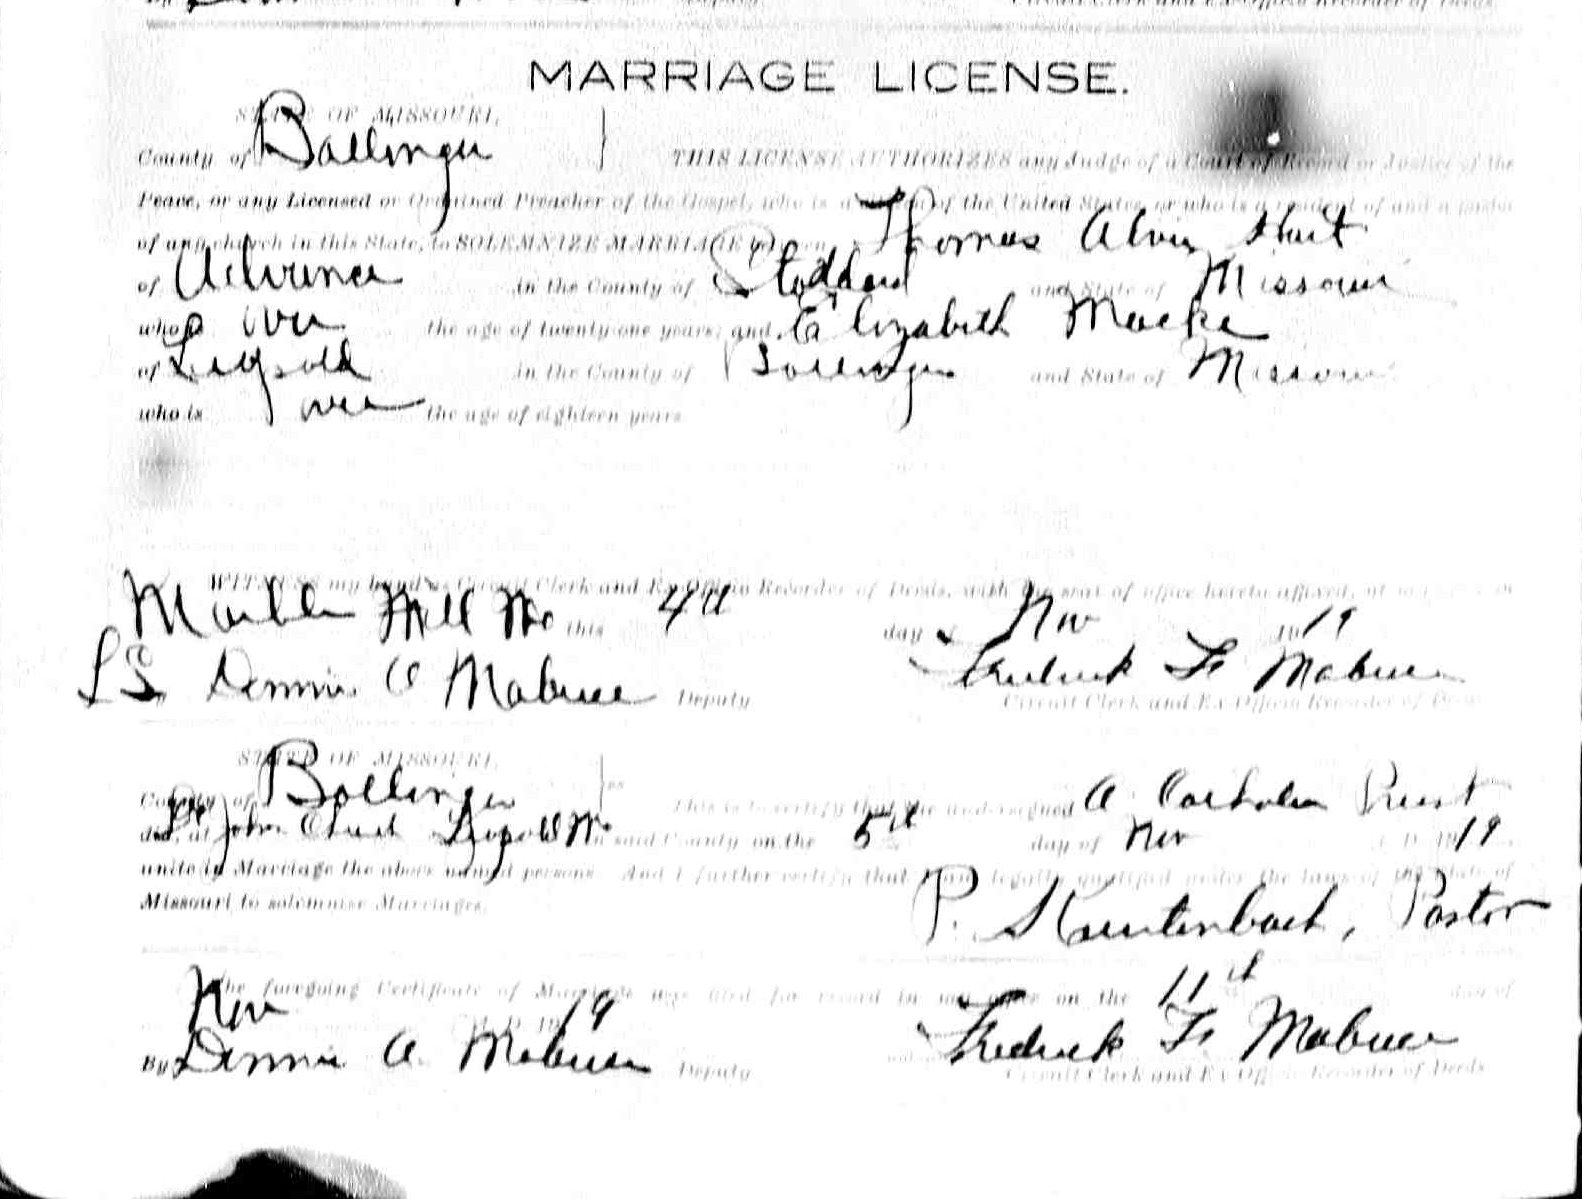 MARRIAGE LICENSE.
STATE OF MISSOURI,
County of Bollinger THIS LICENSE AUTHORIZES any Judge of a Court of Record or Justice of the
Peace, or any Licensed or Ordained Preacher of the Gospel, who is a of the United States, or who is a resident of and a pastor
of any church in this State, to SOLEMNIZE MARRIAGE Thomas Alvin
of Advance in the County of Stoddard and State of Missouri
who is over the age of twenty-one years; and Elizabeth Macke
of Leopold in the County of Bollinger and State of Missouri
who is over the age of eighteen years
WITNESS my hand as Circuit Clerk and Ex-Officio Recorder of Deeds, with the seal of office hereto affixed, at
Marble Hill Mo this 4th day Nov 1919
LS Dennis A Mabuce Deputy Fredrick F. Mabuce
Circuit Clerk and Ex-Officio Recorder of Deeds
STATE OF MISSOURI,
County of Bollinger This is to certify that the undersigned A Catholic Priest
did, at John Church Leopold Mo in said County on the 5th day of Nov A. D. 1919
unite in Marriage the above named persons. And I further certify that I am legally qualified under the laws of the State of
Missouri to solemnize Marriages.
P. Kreutenbach, Pastor
The foregoing Certificate of Marriage was filed for record in my office on the 11th day of
Nov A. D. 1919
By Dennis A. Mabuce Deputy Fredrick F. Mabuce
Circuit Clerk and Ex-Officio Recorder of Deeds